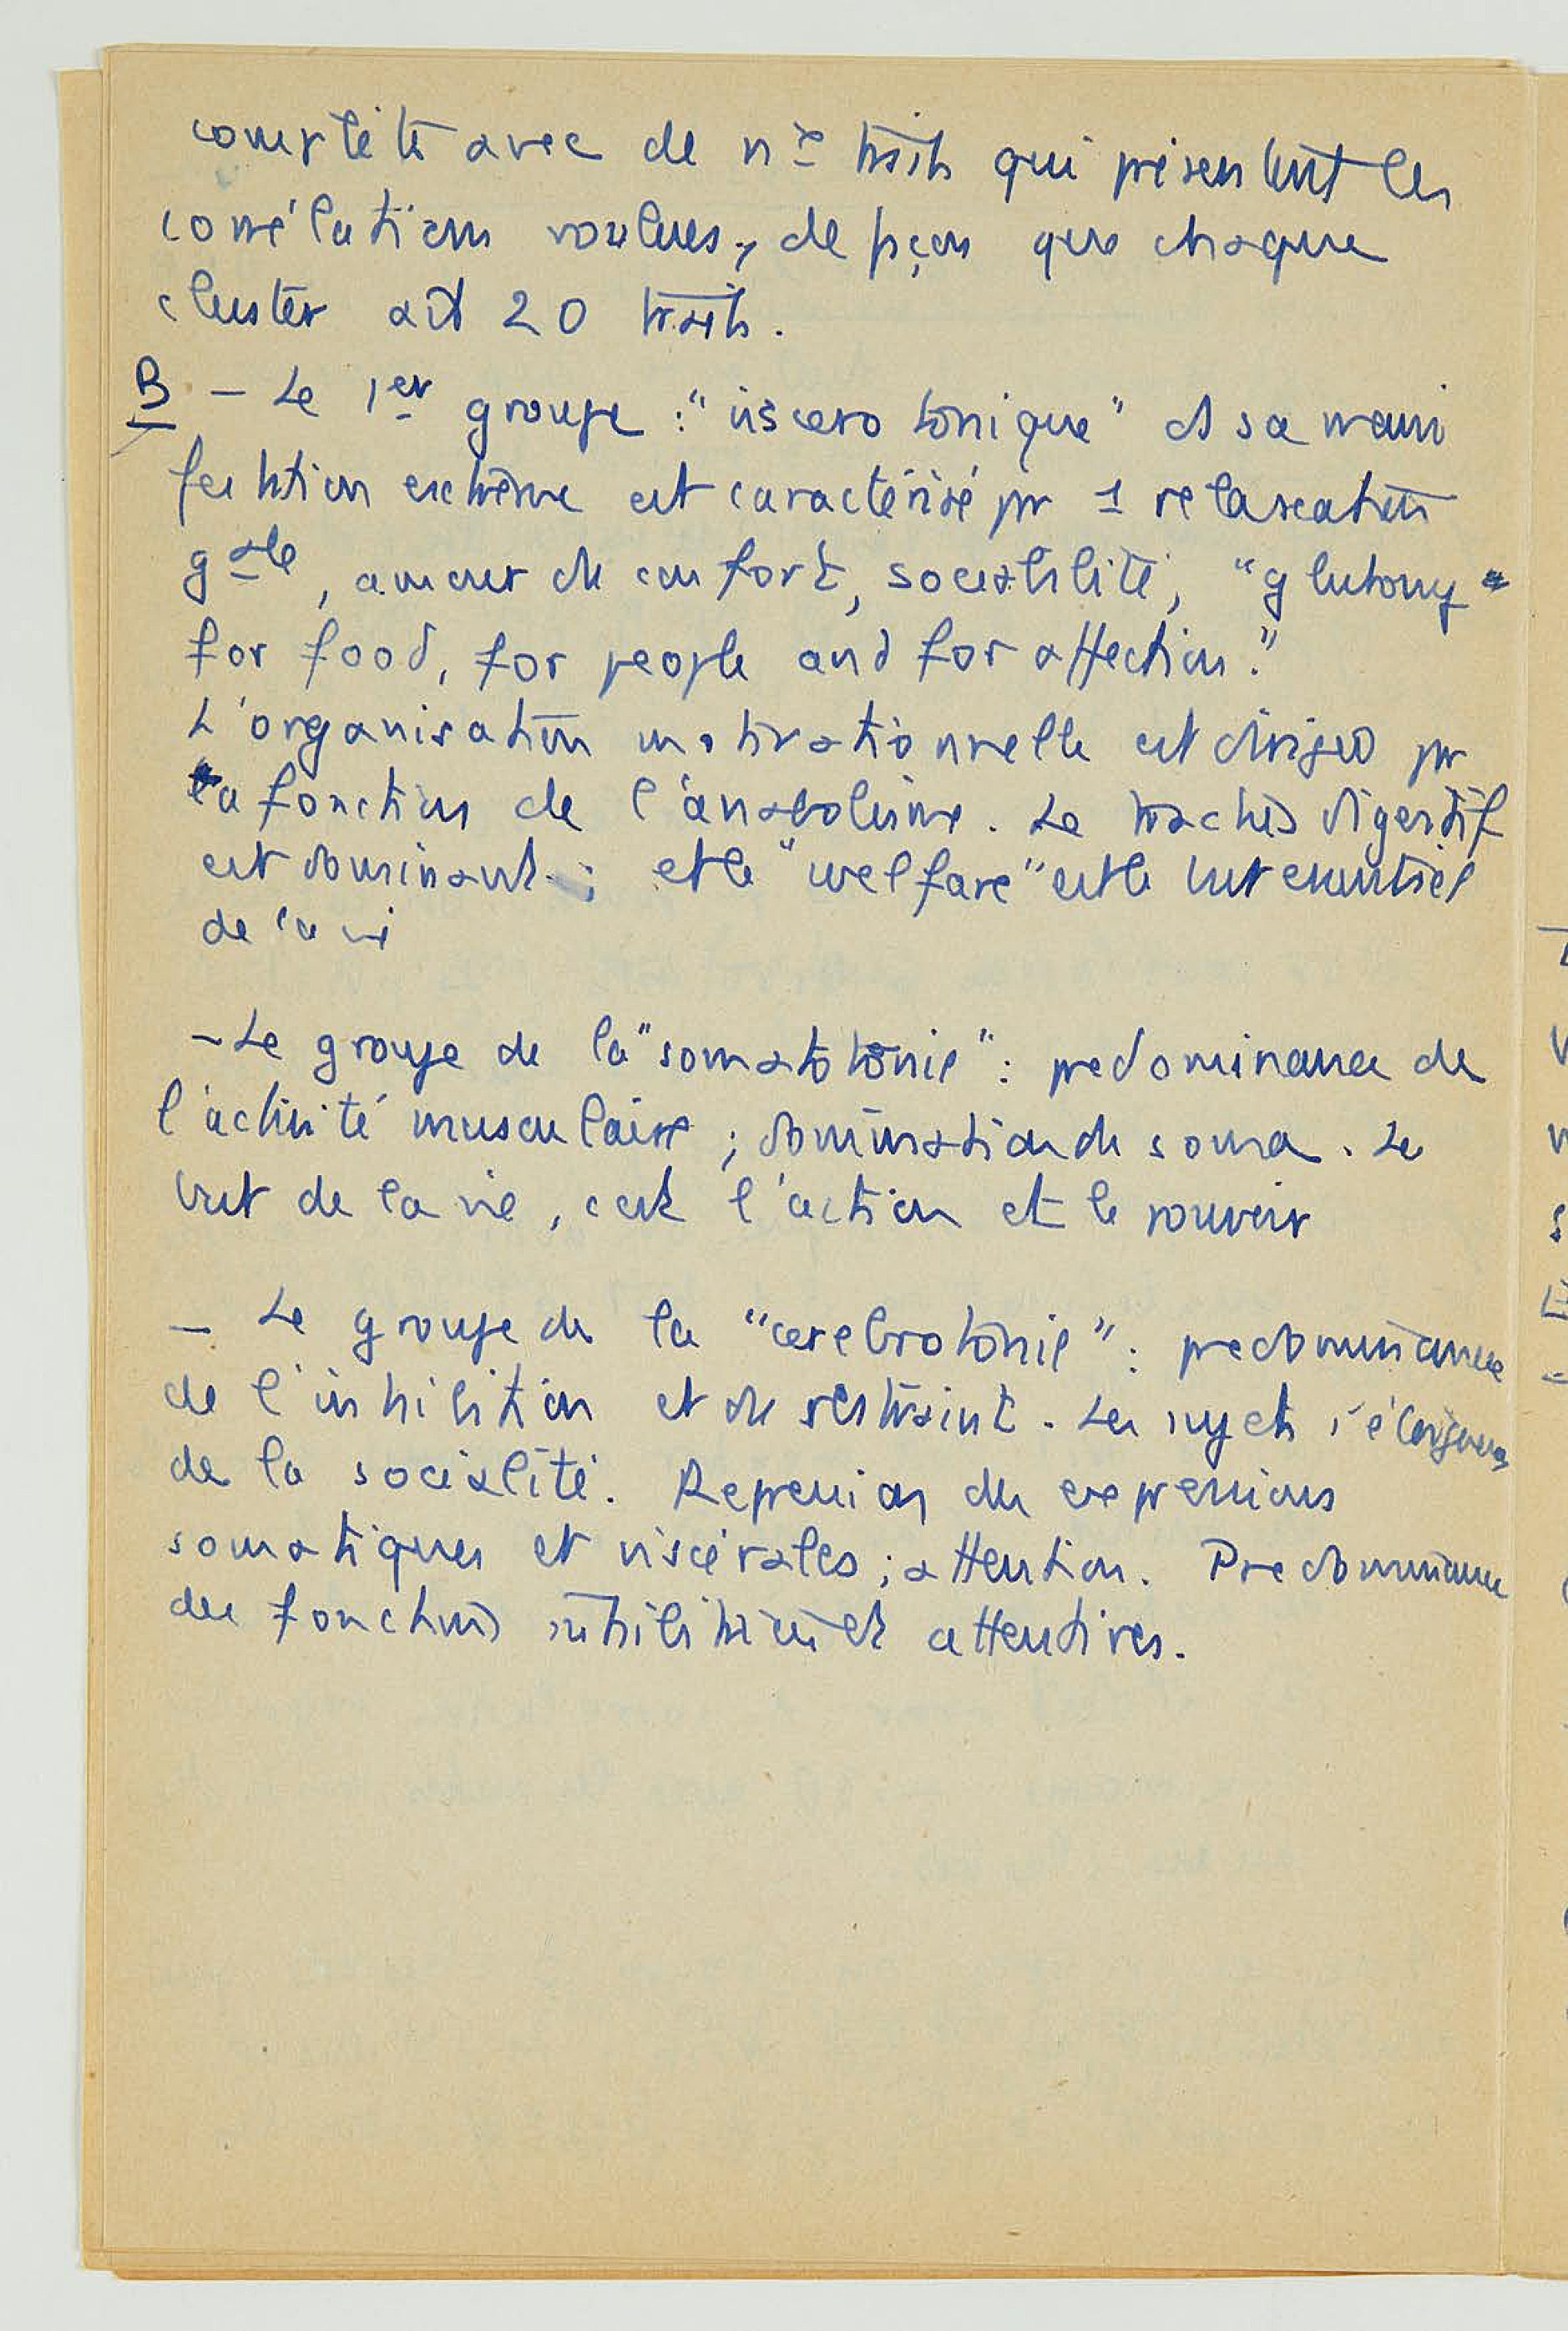 complétés avec de nx traits qui présentent les
corrélations voulues, de façon que chaque
cluster ait 20 traits.
B - Le 1er groupe : "viscerotonique" et sa mani
festation extrême est caractérisé pr 1 relaxation
gale, amour du confort, sociabilité, "glutony
for food, for people and for affection."
L'organisation motivationnelle est dirigée pr
la fonction de l'anabolisme. Le tractus digestif
est dominant ; et le "welfare" est le but essentiel
de la vie
- Le groupe de la "somatotonie" : predominance de
l'activité musculaire ; domination du soma. Le
but de la vie, c'est l'action et le pouvoir
- Le groupe de la "cerebrotonie" : predominance
de l'inhibition et du restraint. Les sujets s'éloignent
de la socialité. Repression des expressions
somatiques et viscérales ; attention. Predominance
des fonctions inhibitrices et attentives.